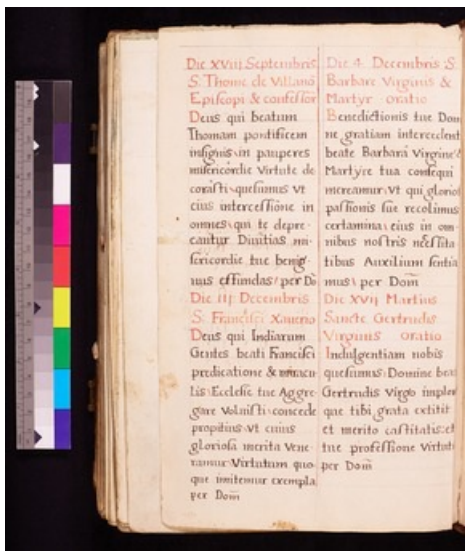 Die XViij Septembris
S. Thome de Villanâ
Episcopi & confessor
Deus qui beatum
Thomam pontificem
insignis in pauperes
misericordie Virtute de
corasti quesumus Vt
eius intercessione in
omnes qui te depre-
cantur Divitias mi-
sericordie tue benig-
nus effundas per Do
Die iij Decembris
S. Francisci Xauerio
Deus qui Indiarum
Gentes beati Francisci
predicatione & miracu-
lis Ecclesie tue Aggre-
gare Voluisti concede
propitius Vt cuius
gloriosa merita Vene-
ramur Virtutum quo-
que imitemur exempla
per Dom̃
Die 4 Decembris S.
Barbare Virginis &
Martyr oratio
Benedictionis tue Domi
ne gratiam intercedent
beate Barbarâ Virgine &
Martÿre tua consequi
mereamur Vt qui glorios
passionis sue recolimus
certamina eius in om-
nibus nostris necessita
tibus Auxilium sentia
mus per Dom̃
Die XVij Martius
Sancte Gertrudis
Virginis oratio
Indulgentiam nobis
quesumus Domine bea
Gertrudis Virgo implor
que tibi grata extitit
et merito castitatis et
tue professione Virtuti
per Dom̃